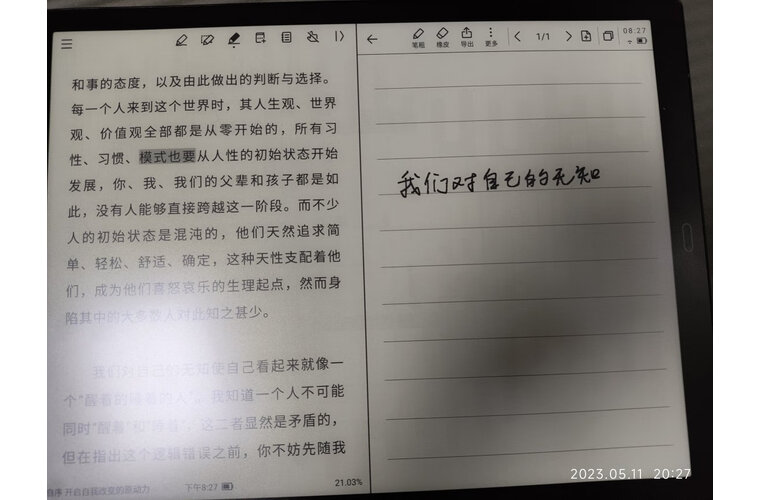 08:27
笔粗 橡皮 导出 更多 1/1
和事的态度，以及由此做出的判断与选择。
每一个人来到这个世界时，其人生观、世界
观、价值观全部都是从零开始的，所有习
性、习惯、模式也要从人性的初始状态开始
发展，你、我、我们的父辈和孩子都是如
此，没有人能够直接跨越这一阶段。而不少
人的初始状态是混沌的，他们天然追求简
单、轻松、舒适、确定，这种天性支配着他
们，成为他们喜怒哀乐的生理起点，然而身
陷其中的大多数人对此知之甚少。
我们对自己的无知使自己看起来就像一
个“醒着的睡着的人”。我知道一个人不可能
同时“醒着”和“睡着”，这二者显然是矛盾的，
但在指出这个逻辑错误之前，你不妨先随我
自序 开启自我改变的原动力 下午8:27 21.03%
我们对自己的无知
2023.05.11 20:27